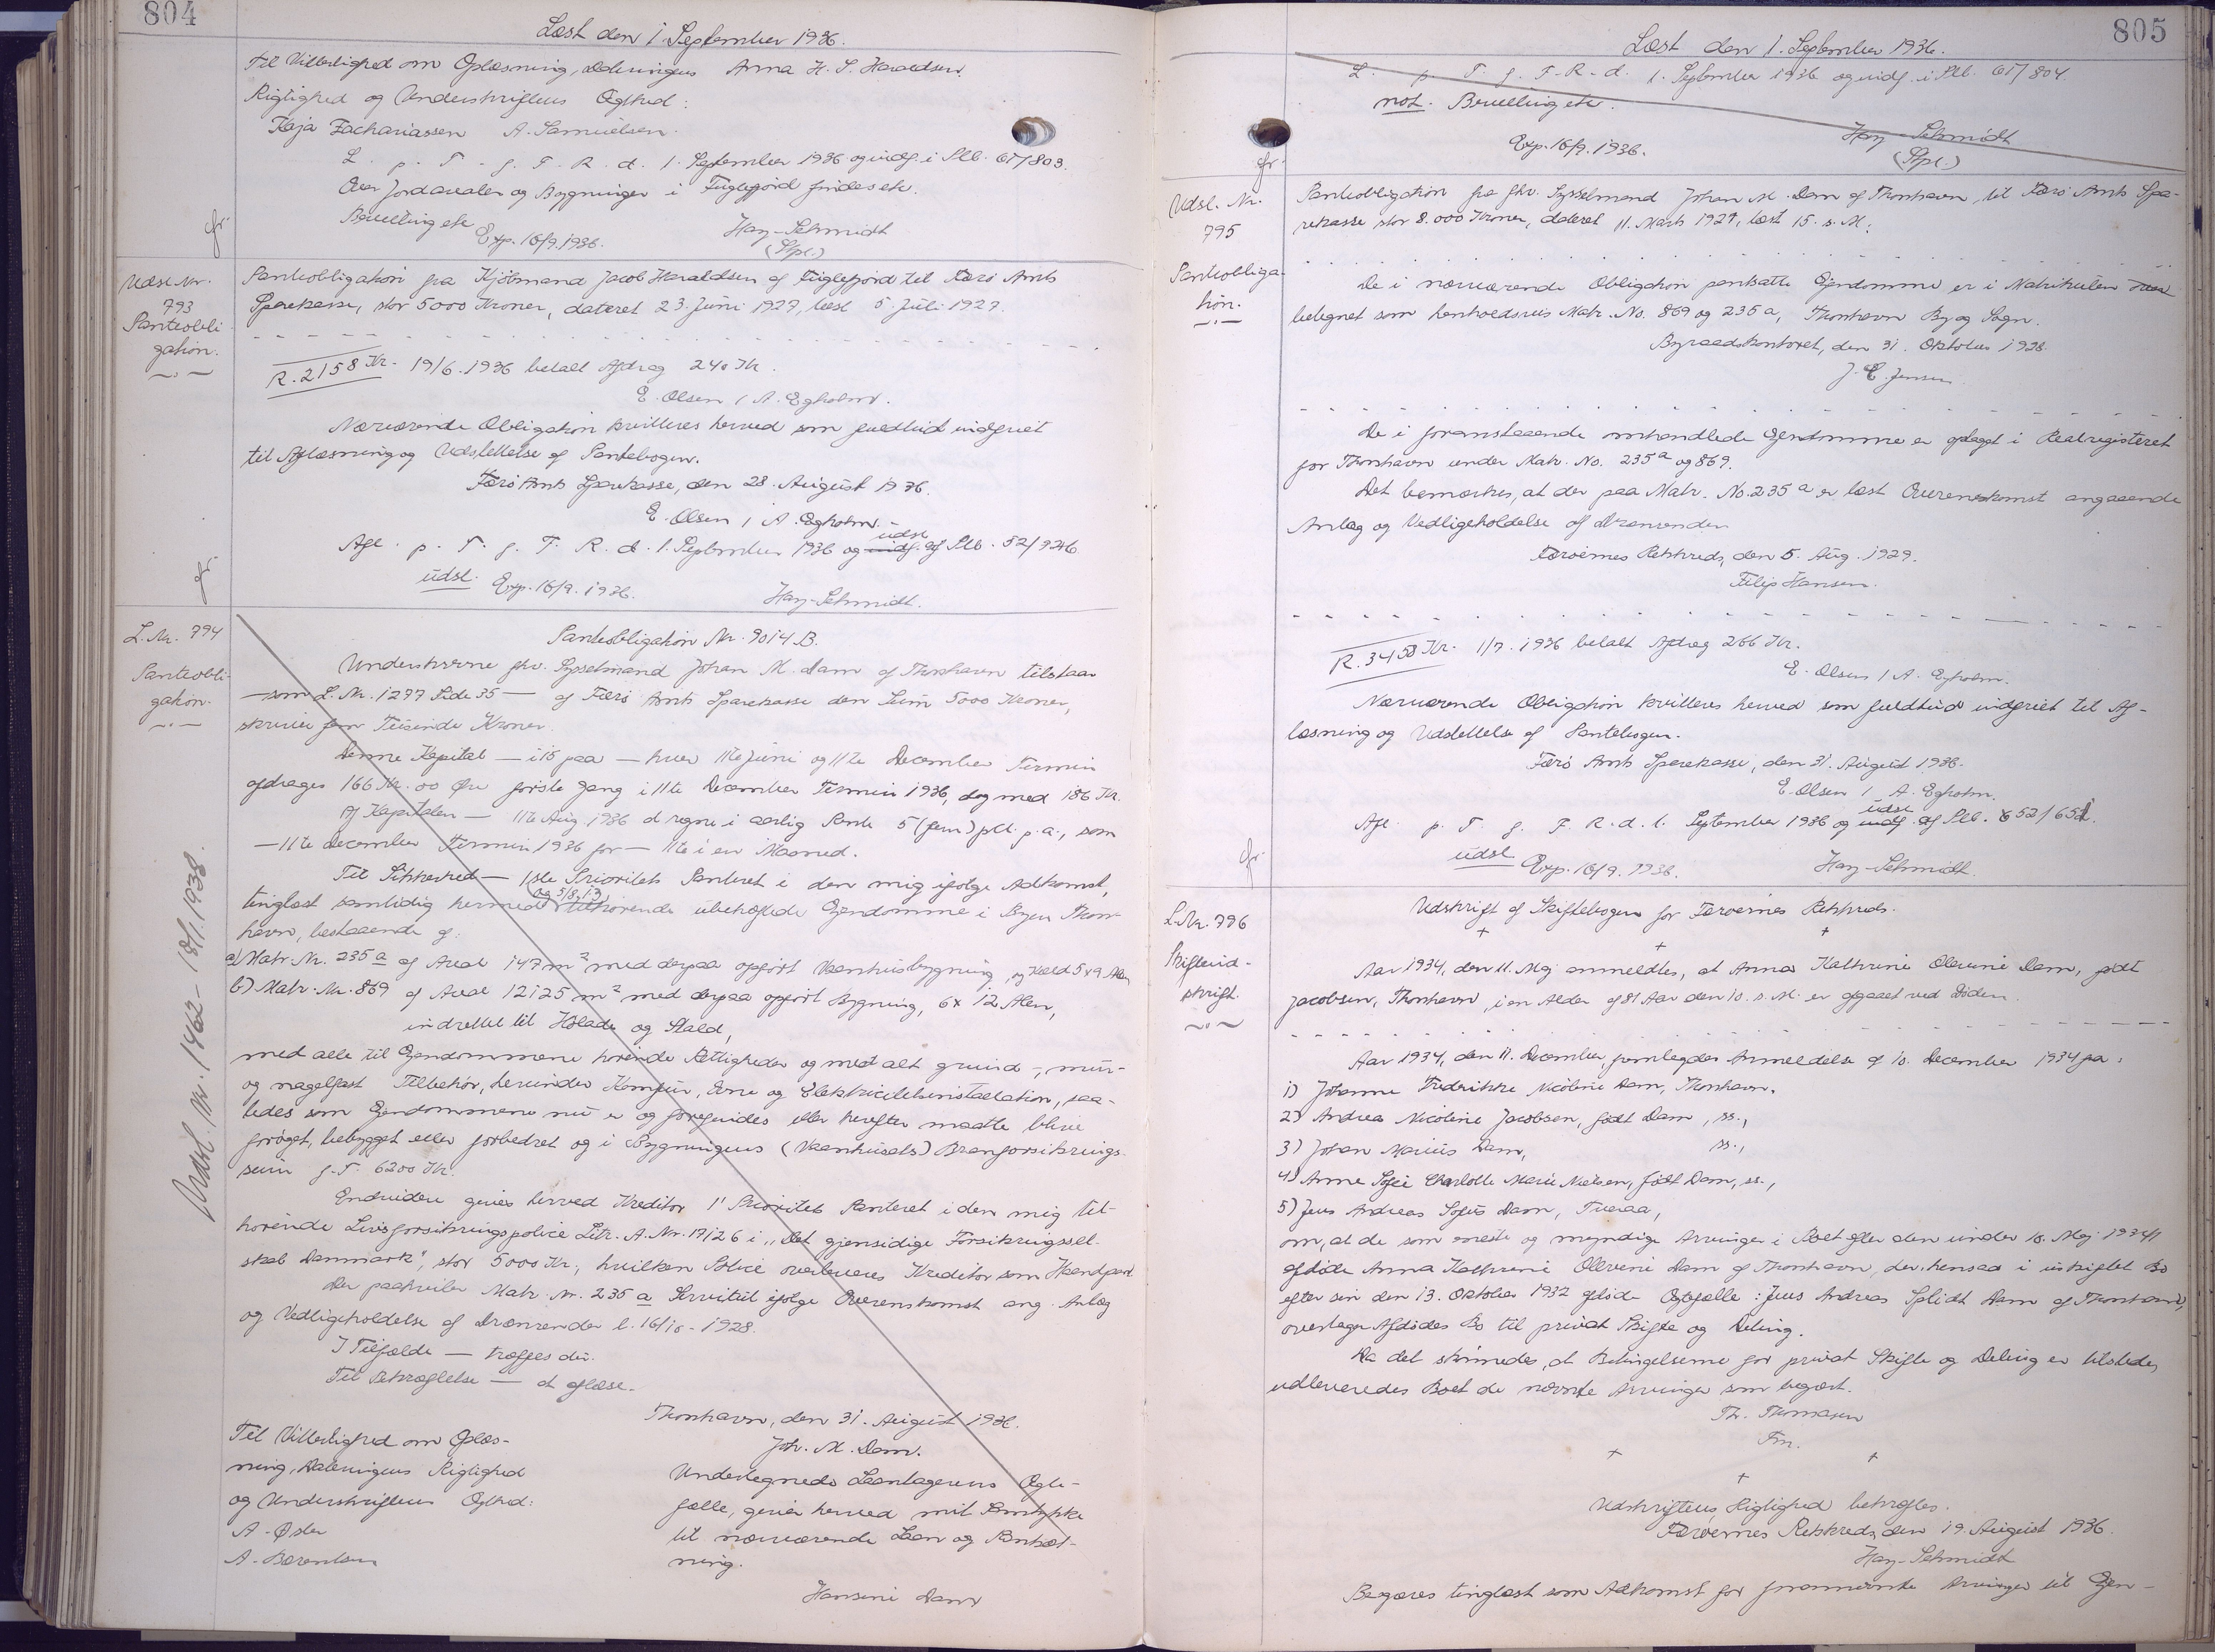 804
Læst den 1. September 1936.
Til Vitterlighed om Oplæsning, Dateringens Anna H. S. Haraldsen.
Rigtighed og Underskriftens Ægthed:
Kaja Zachariassen A. Samuelsen.
L. p. T. f. F. R. d. 1. September 1936 og indf. i Plb. 61/803.
Over Jordarealer og Bygninger i Fuglefjord findes etc.
Bevilling etc.
Exp. 16/9.1936. Hay-Schmidt
(Spl.)
fr.
Udsl. Nr. 793
Panteobli
gation.
Panteobligation fra Kjöbmand Jacob Haraldsen af Fuglefjord til Færö Amts
Sparekasse, stor 5000 Kroner, dateret 23. Juni 1927, læst 5. Juli 1927.
R. 2158 Kr. 19/6.1936 betalt Afdrag 240 Kr.
E. Olsen / A. Egholm.
Nærværende Obligation kvitteres herved som fuldtud indfriet
til Aflæsning og Udslettelse af Pantebogen.
Færö Amts Sparekasse, den 28. August 1936.
E. Olsen / A. Egholm.
udsl.
Afl. p. T. f. F. R. d. 1. September 1936 og indf. af Plb. 52/926
udsl. Exp. 16/9.1936. Hay-Schmidt.
fr.
L. Nr. 794
Panteobli-
gation.
Udsl. Nr. 1462 - 18/1.1938.
Panteobligation Nr. 9014 B.
Underskrevne fhv. Sysselmand Johan M. Dam af Thorshavn tilstaar
— som L. Nr. 1277 Side 35 — af Færö Amts Sparekasse den Sum 5000 Kroner,
skriver fem Tusinde Kroner.
Denne Kapital — i 15 paa — hver 11te Juni og 11te December Termin
afdrages 166 Kr. 00 Øre förste Gang i 11te December Termin 1936, dog med 186 Kr.
Af Kapitalen — 11te Aug. 1936 at regne i aarlig Rente 5 (fem) pCt. p.a., som
— 11te December Termin 1936 for — 11te i en Maaned.
Til Sikkerhed — 1ste Prioritets Panteret i den mig ifölge Adkomst,
og 5/8.13
tinglæst samtidig hermed tilhörende ubehæftede Ejendomme i Byen Thors-
havn, bestaaende af:
a) Matr. Nr. 235 a af Areal 147 m² med derpaa opfört Vaanhusbygning, og Kæld 5 x 9 Alen
b) Matr. Nr. 869 af Areal 12125 m² med derpaa opfört Bygning, 6 x 12 Alen,
indrettet til Hölade og Stald,
med alle til Ejendommene hörende Rettigheder og med alt grund-, mur-
og nagelfast Tilbehör, herunder Komfur, Ovne og Elektricitetsinstallation, saa-
ledes som Ejendommene nu er og forefindes eller herefter maatte blive
foröget, bebygget eller forbedret og i Bygningens (Vaanhusets) Brandforsikrings-
sum p.T. 6200 Kr.
Endvidere gives herved Kreditor 1' Prioritets Panteret i den mig til-
hörende Livsforsikringspolice Litr. A. Nr. 17126 i "Det gjensidige Forsikringssel-
skab Danmark", stor 5000 Kr., hvilken Police overleveres Kreditor som Haandpant
Der paahviler Matr. Nr. 235 a Servitut ifölge Overenskomst ang. Anlæg
og Vedligeholdelse af Drænrender l. 16/10 - 1928.
I Tilfælde — træffes der.
Til Bekræftelse — at aflæse.
Thorshavn, den 31. August 1936.
Joh. M. Dam.
Til Vitterlighed om Oplæs-
ning, Dateringens Rigtighed
og Underskriftens Ægthed:
A. Øster
A. Bærentsen
Undertegnede Laantagerens Ægte-
fælle, giver herved mit Samtykke
til nærværende Laan og Pantsæt-
ning.
Hansine Dam
805
Læst den 1. September 1936.
L. p. T. f. F. R. d. 1. September 1936 og indf. i Plb. 61/804.
not. Bevilling etc.
Exp. 16/9.1936. Hay-Schmidt
(Spl.)
fr.
Udsl. Nr.
795
Panteobliga-
tion.
Panteobligation fra fhv. Sysselmand Johan M. Dam af Thorshavn, til Færö Amts Spa-
rekasse stor 8.000 Kroner, dateret 11. Marts 1927, læst 15. s. M.
De i nærværende Obligation pantsatte Ejendomme er i Matrikulen
betegnet som henholdsvis Matr. No. 869 og 235 a, Thorshavn By og Sogn.
Byraadskontoret, den 31. Oktober 1928.
J. C. Jensen
De i foranstaaende omhandlede Ejendomme er optaget i Realregisteret
for Thorshavn under Matr. No. 235 a og 869.
Det bemærkes, at der paa Matr. No. 235 a er læst Overenskomst angaaende
Anlæg og Vedligeholdelse af Drænrender.
Færöernes Retskreds, den 5. Aug. 1929.
Filip Hansen.
R. 3458 Kr. 11/7.1936 betalt Afdrag 266 Kr.
E. Olsen / A. Egholm.
Nærværende Obligation kvitteres herved som fuldtud indfriet til Af-
læsning og Udslettelse af Pantebogen.
Færö Amts Sparekasse, den 31. August 1936.
E. Olsen / A. Egholm.
udsl.
Afl. p. T. f. F. R. d. 1. September 1936 og indf. af Plb. 52/651.
udsl. Exp. 16/9.1936. Hay-Schmidt.
fr.
L. Nr. 796
Skifteud-
skrift.
Udskrift af Skiftebogen for Færöernes Retskreds.
Aar 1934, den 11. Maj anmeldtes, at Anna Kathrine Olevine Dam, födt
Jacobsen, Thorshavn, i en Alder af 81 Aar den 10. s. M. er afgaaet ved Döden.
Aar 1934, den 11. December, fremlagdes Anmeldelse af 10. December 1934 fra:
1) Johanne Frederikke Nicoline Dam, Thorshavn.
2) Andrea Nicoline Jacobsen, födt Dam, ss.,
3) Johan Marius Dam, ss.,
4) Anne Sofie Charlotte Marie Nielsen, födt Dam, ss.,
5) Jens Andreas Sofus Dam, Tveraa,
om, at de som eneste og myndige Arvinger i Boet efter den under 10. Maj 1934
afdöde Anna Kathrine Olevine Dam af Thorshavn, der hensad i uskiftet Bo
efter sin den 13. Oktober 1932 afdöde Ægtefælle: Jens Andreas Splidt Dam af Thorshavn,
overtager Afdödes Bo til privat Skifte og Deling.
Da det skönnedes, at Betingelserne for privat Skifte og Deling er tilstede,
udleveredes Boet de nævnte Arvinger som begært.
Th. Thomasen
Fm.
Udskriftens Rigtighed bekræftes.
Færöernes Retskreds, den 19. August 1936.
Hay-Schmidt
Begæres tinglæst som Adkomst for foranævnte Arvinger til Ejen-